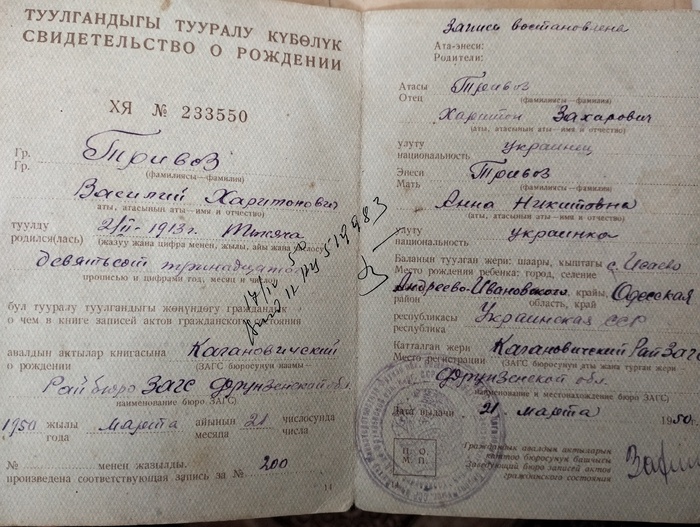 ТУУЛГАНДЫГЫ ТУУРАЛУ КҮБӨЛҮК
СВИДЕТЕЛЬСТВО О РОЖДЕНИИ
ХЯ № 233550
Гр. Тривоз
Гр.
(фамилиясы—фамилия)
Василий Харитонович
аты, атасынын аты—имя и отчество)
туулду
родился(лась) 2/II-1913г.
(жазуу жана цифра менен, жылы, айы жана
девятьсот тринадцатого
прописью и цифрами год, месяц и число)
бул тууралу туулгандыгы жөнүндөгү граждандык
о чем в книге записей актов гражданского состояния
авалдын актылар книгасына Кагановичский
о рождении (ЗАГС бюросунун наамы—
Райбюро Загс Фрунзенской обл.
наименование бюро ЗАГС)
1950 жылы марта айынын 21 числосунда
года месяца числа
№ менен жазылды.
произведена соответствующая запись за № 200
14
519983
Запись востановлена
Ата-энеси:
Родители:
Атасы Тривоз
Отец
(фамилиясы—фамилия)
Харитон Захарович
(аты, атасынын аты—имя и отчество)
улуту украинец
национальность
Энеси Тривоз
Мать (фамилиясы—фамилия)
Анна Никитовна
(аты, атасынын аты—имя и отчество)
улуту украинка
национальность
Баланын туулган жери: шаары, кыштагы
Место рождения ребенка: город, селение с. Исаево
Андреево-Ивановского, крайы, Одесская
район область, край
республикасы Украинская ССР
республика
Катталган жери Кагановичский РайЗагс
Место регистрации (ЗАГС бюросунун аты жана турган жери—
Фрунзенской обл.
наименование и местонахождение бюро ЗАГС)
Дата выдачи 21 марта 1950г.
М. П.
Граждандык авалдын актыларын
бюросунун башчысы
Заведующий бюро записей актов
гражданского состояния